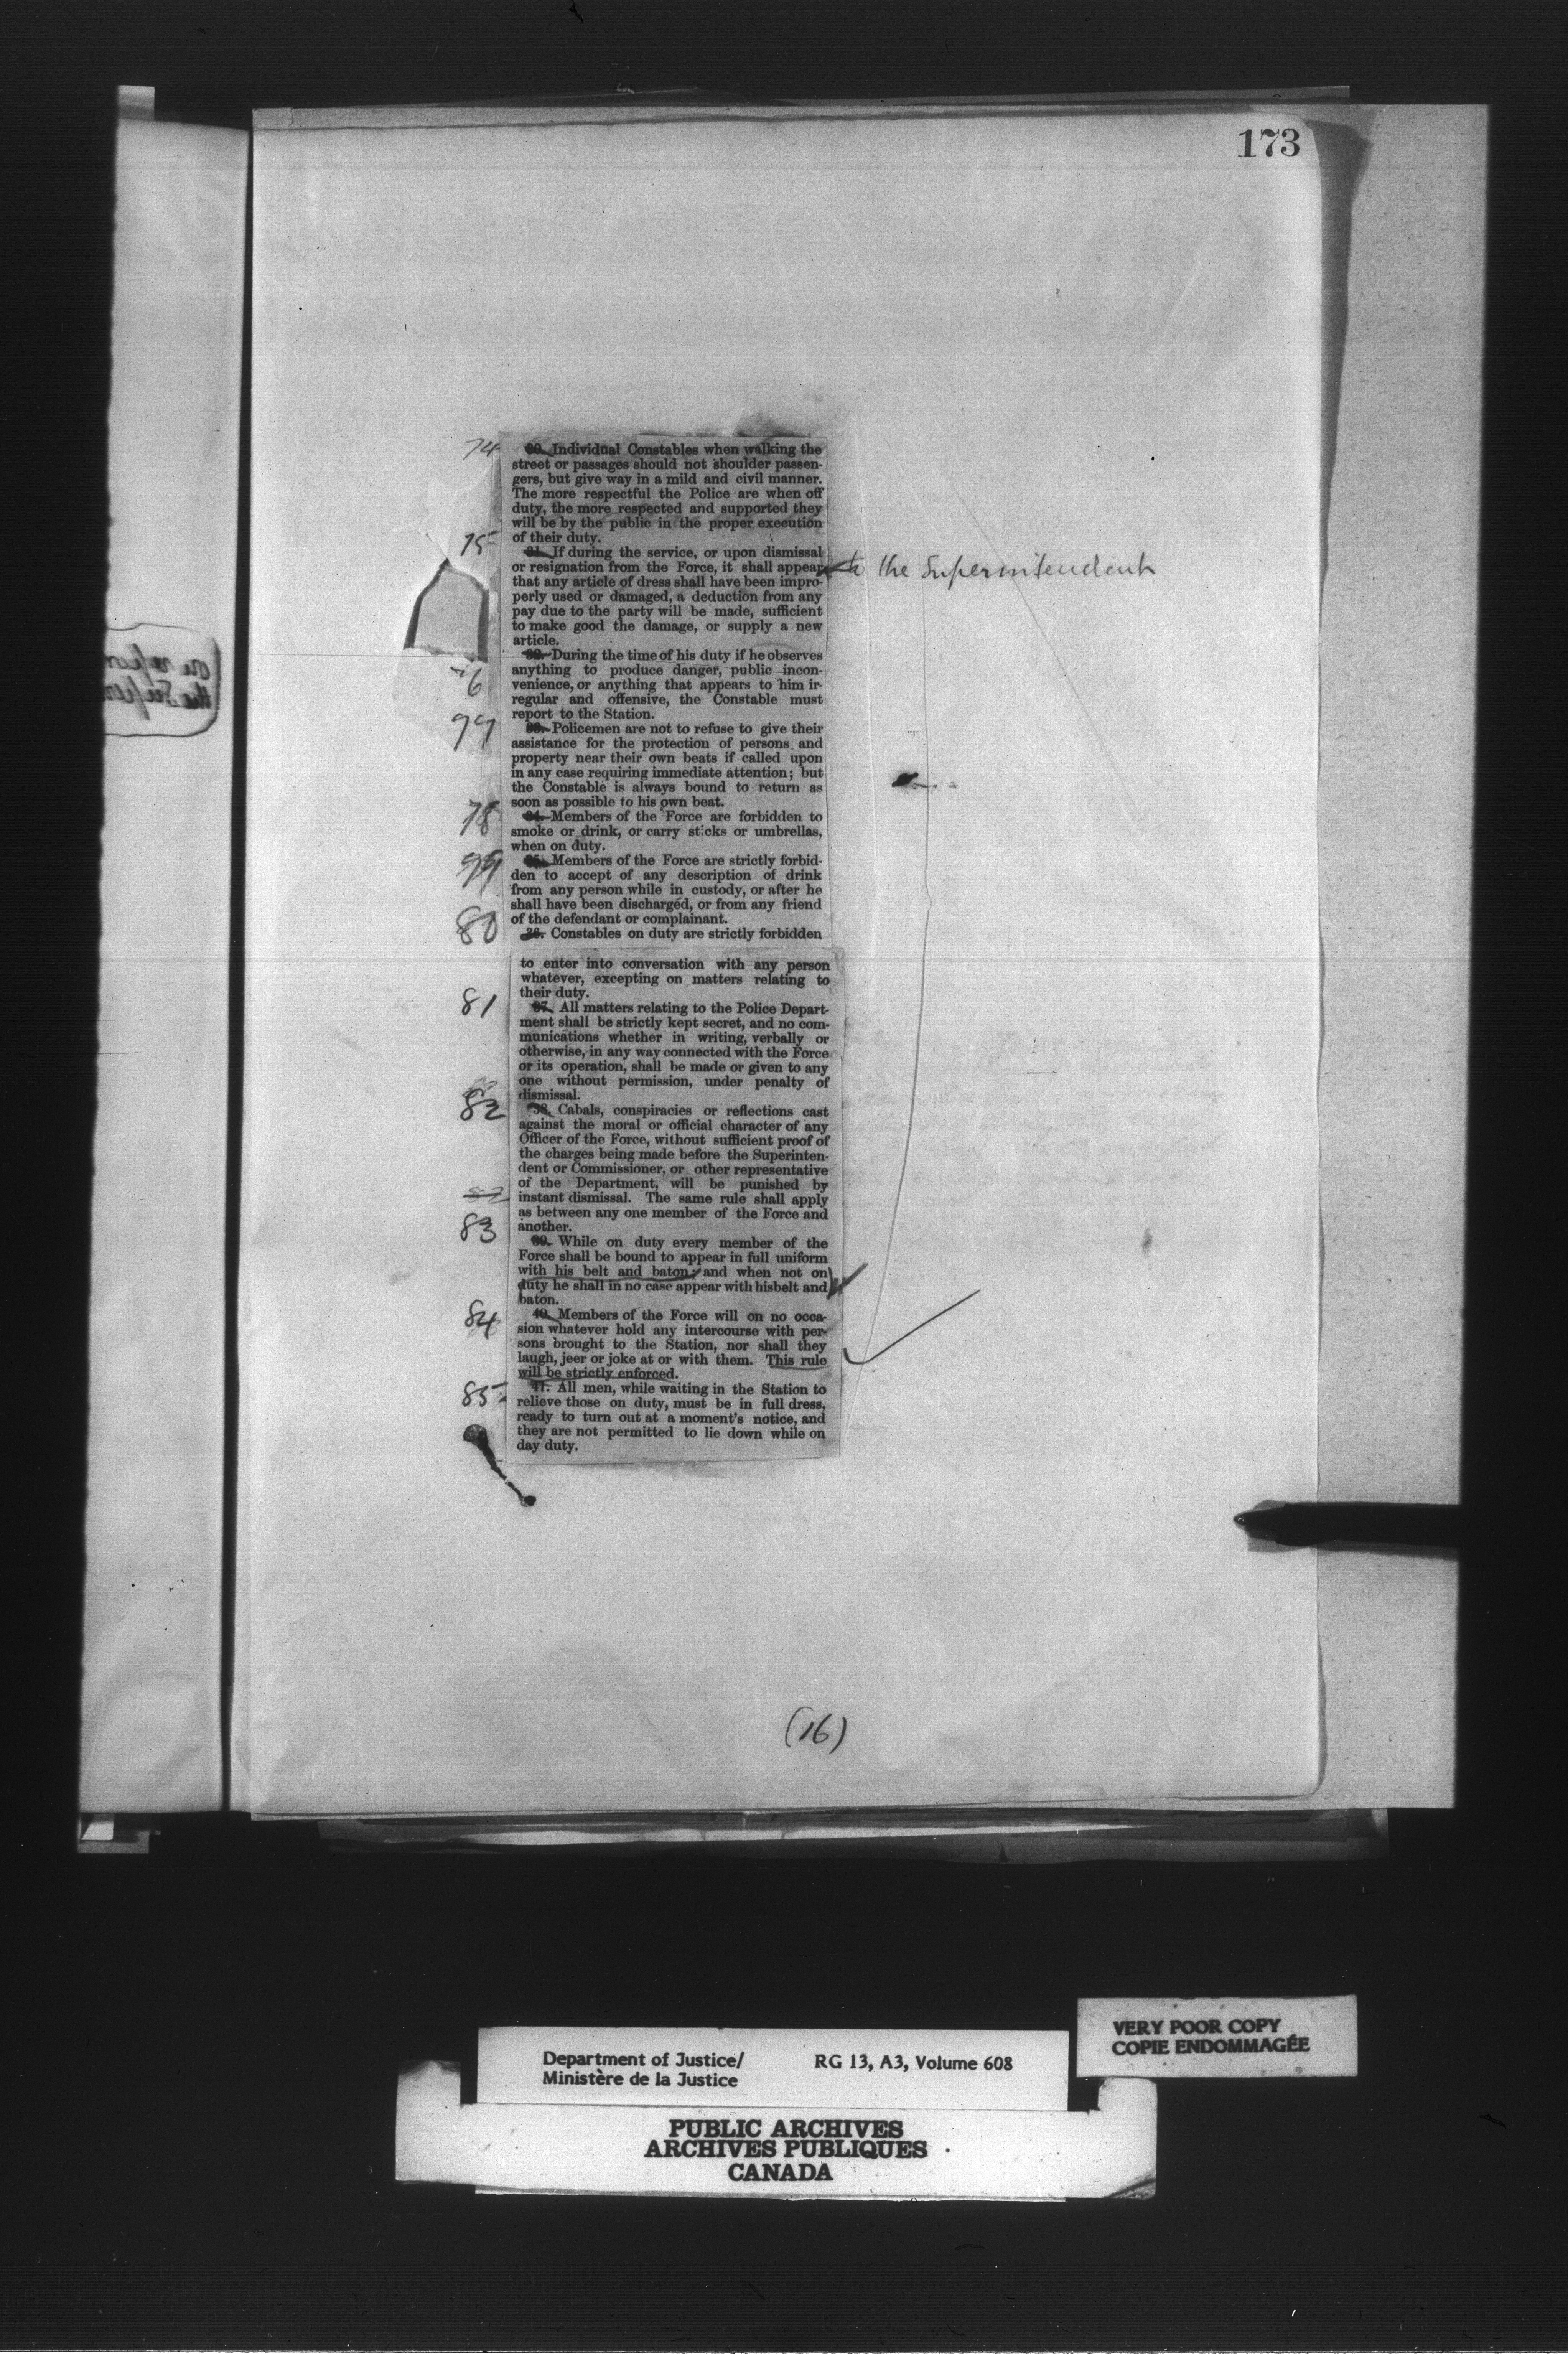 173
74 30. Individual Constables when walking the
street or passages should not shoulder passen-
gers, but give way in a mild and civil manner.
The more respectful the Police are when off
duty, the more respected and supported they
will be by the public in the proper execution
of their duty.
75 31. If during the service, or upon dismissal
or resignation from the Force, it shall appear to the Superintendent
that any article of dress shall have been impro-
perly used or damaged, a deduction from any
pay due to the party will be made, sufficient
to make good the damage, or supply a new
article.
32. During the time of his duty if he observes
anything to produce danger, public incon-
76 venience, or anything that appears to him ir-
regular and offensive, the Constable must
report to the Station.
77 33. Policemen are not to refuse to give their
assistance for the protection of persons and
property near their own beats if called upon
in any case requiring immediate attention; but
the Constable is always bound to return as
soon as possible to his own beat.
78 34. Members of the Force are forbidden to
smoke or drink, or carry sticks or umbrellas,
when on duty.
79 35. Members of the Force are strictly forbid-
den to accept of any description of drink
from any person while in custody, or after he
shall have been discharged, or from any friend
of the defendant or complainant.
80 36. Constables on duty are strictly forbidden
to enter into conversation with any person
whatever, excepting on matters relating to
their duty.
81 37. All matters relating to the Police Depart-
ment shall be strictly kept secret, and no com-
munications whether in writing, verbally or
otherwise, in any way connected with the Force
or its operation, shall be made or given to any
one without permission, under penalty of
dismissal.
82 38. Cabals, conspiracies or reflections cast
against the moral or official character of any
Officer of the Force, without sufficient proof of
the charges being made before the Superinten-
dent or Commissioner, or other representative
of the Department, will be punished by
instant dismissal. The same rule shall apply
as between any one member of the Force and
another.
83 39. While on duty every member of the
Force shall be bound to appear in full uniform
with his belt and baton; and when not on
duty he shall in no case appear with hisbelt and
baton.
84 40. Members of the Force will on no occa-
sion whatever hold any intercourse with per-
sons brought to the Station, nor shall they
laugh, jeer or joke at or with them. This rule
will be strictly enforced.
85 41. All men, while waiting in the Station to
relieve those on duty, must be in full dress,
ready to turn out at a moment's notice, and
they are not permitted to lie down while on
day duty.
(16)
VERY POOR COPY
COPIE ENDOMMAGÉE
Department of Justice/ RG 13, A3, Volume 608
Ministère de la Justice
PUBLIC ARCHIVES
ARCHIVES PUBLIQUES
CANADA